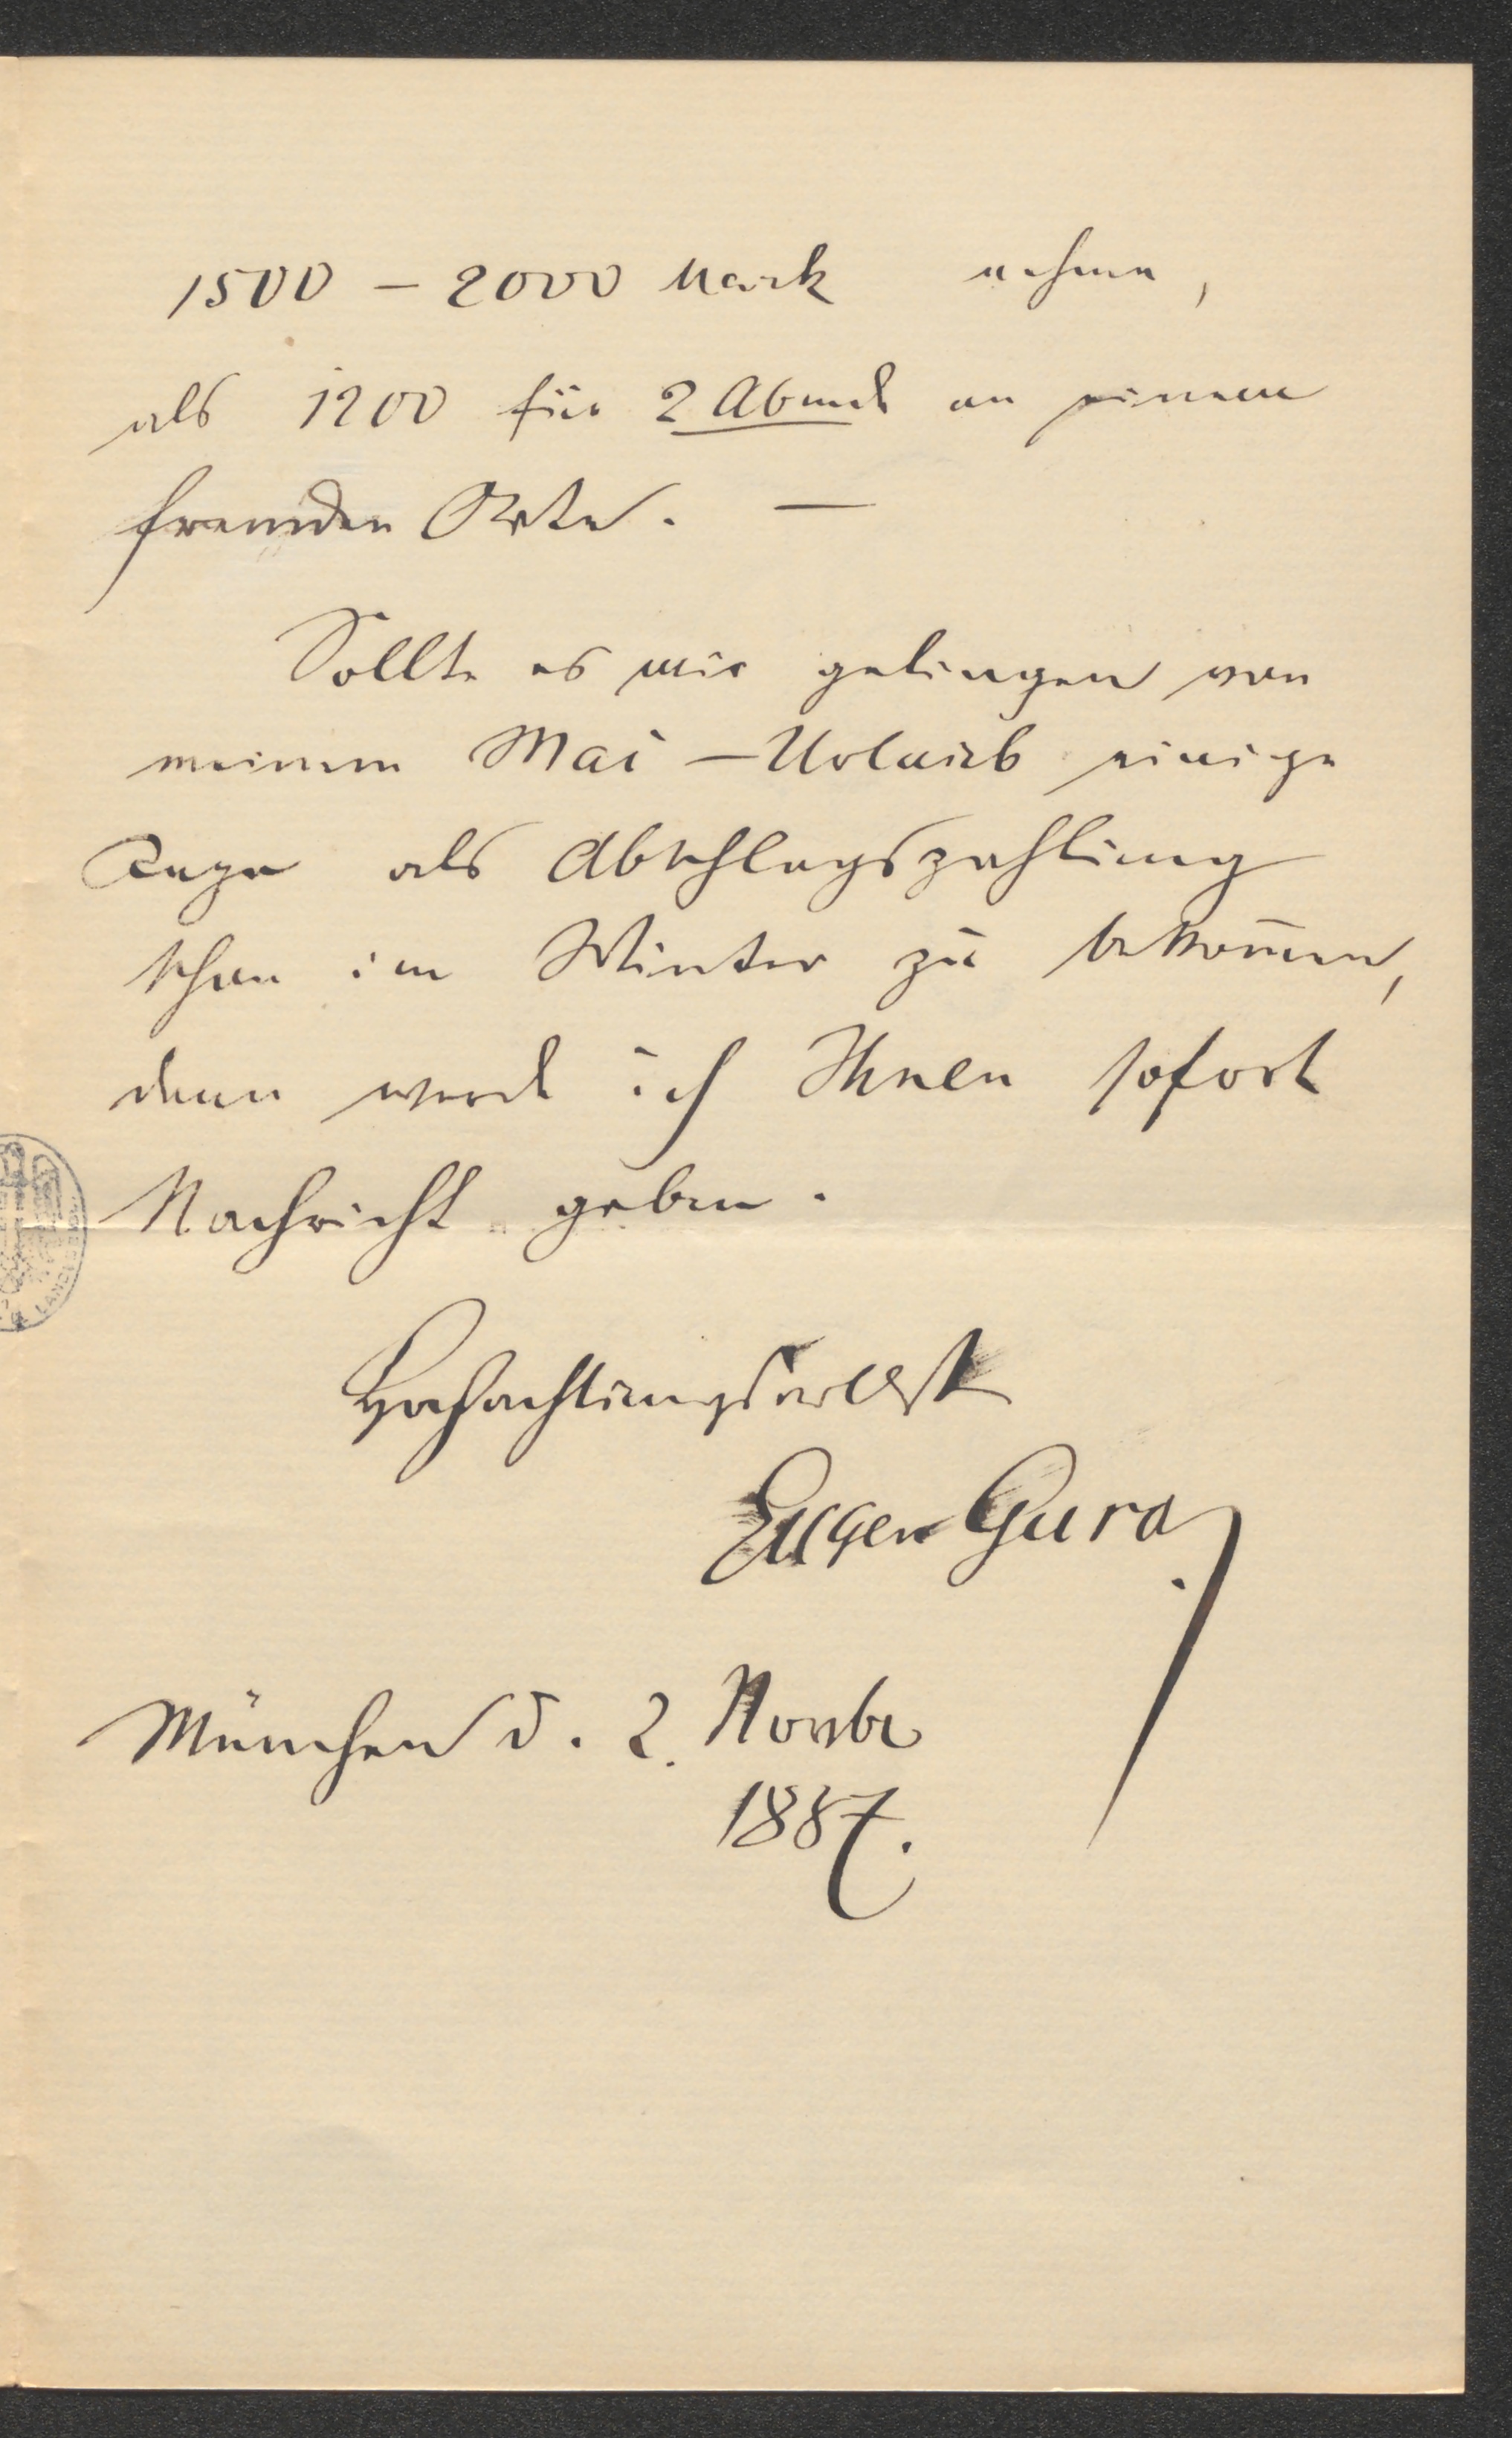 1500 – 2000 Mark nehme,
als 1200 für 2 Abende an einem
fremden Orte. —
Sollte es mir gelingen von
meinem Mai – Urlaub einige
Tage als Abschlagszahlung
schon im Winter zu bekom̄en,
dann werde ich Ihnen sofort
Nachricht geben.
Hochachtungsvollst
Eugen Gura
München d. 2. Novbr
1887.